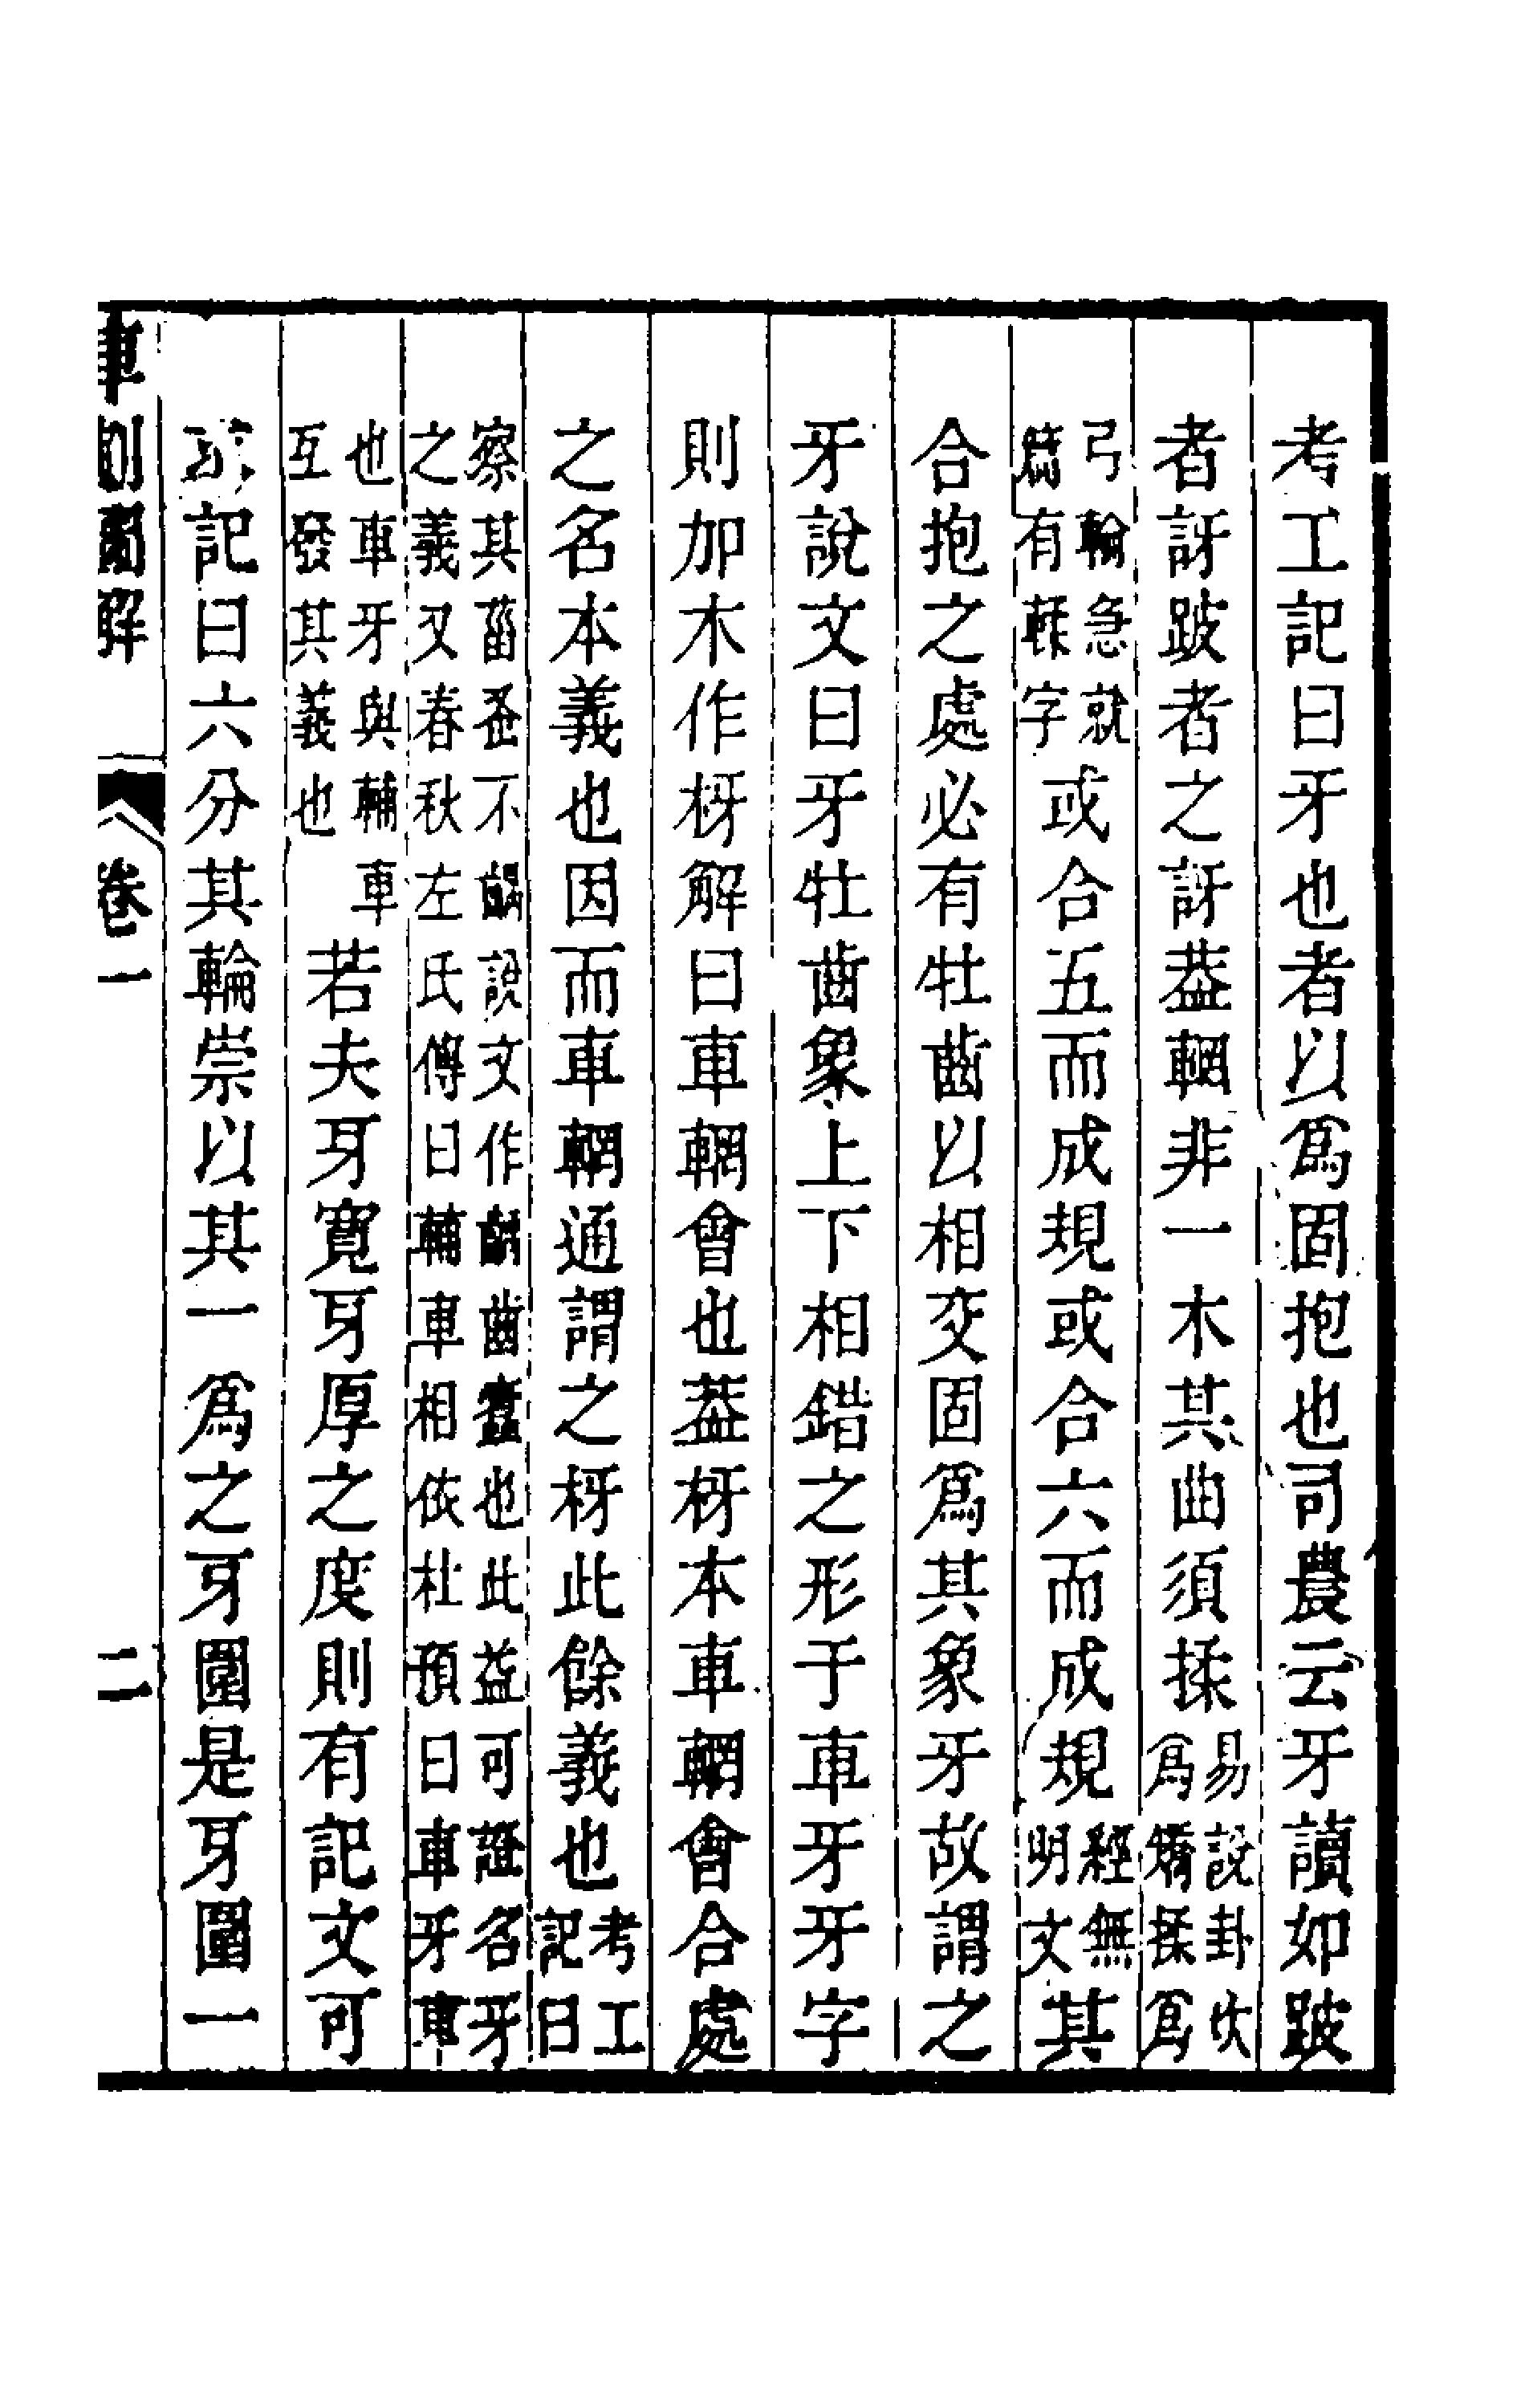 考工記曰牙也者以爲固抱也司農云牙讀如跛
者訝跛者之訝葢輞非一木其曲須揉易說卦坎爲矯揉爲
弓輪急就篇有輮字或合五而成規或合六而成規經無明文其
合抱之處必有牡齒以相交固爲其象牙故謂之
牙說文曰牙牡齒象上下相錯之形于車牙牙字
則加木作枒解曰車輞會也葢枒本車輞會合處
之名本義也因而車輞通謂之枒此餘義也考工記曰
察其菑蚤不齵說文作齲齒蠹也此益可證名牙之義又春秋左氏傳曰輔車相依杜預曰車牙車
也車牙與輔車互發其義也若夫牙寬牙厚之度則有記文可
記曰六分其輪崇以其一爲之牙圍是牙圍一
車制圖解 卷一 二